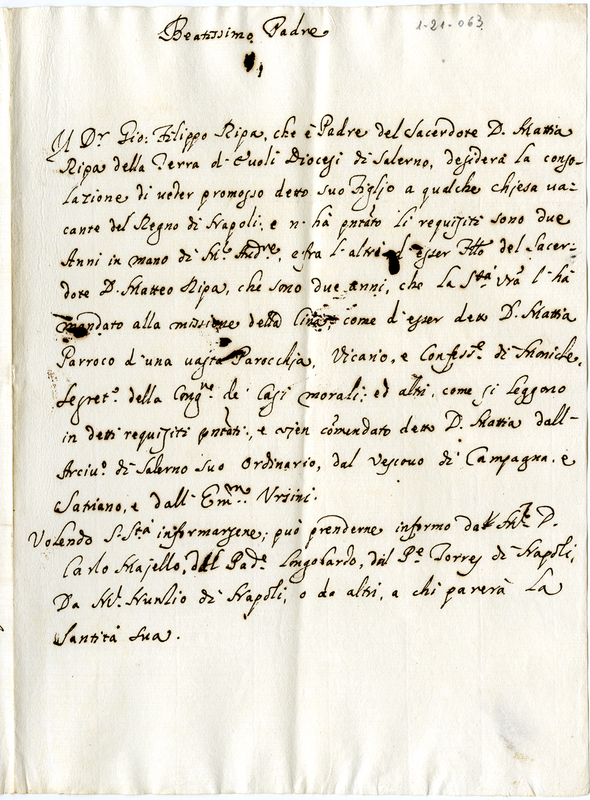 1-21-063
Beatissimo Padre
Il Dr. Gio: Filippo Ripa, che è Padre del Sacerdote D. Mattia
Ripa della Terra d'Evoli Diocesi di Salerno, desidera la conso-
lazione di veder promosso detto suo Figlio a qualche chiesa va-
cante del Regno di Napoli, e n'hà pntato li requisiti sono due
Anni in mano di M.r Andre, e frà l'altri d'esser Fllo del Sacer-
dote D. Matteo Ripa, che sono due anni, che la Stà Vrã l'hà
mandato alla missione della Cina; come d'esser detto D. Mattia
Parroco d'una vasta Parocchia, Vicario, e Confess.e di Moniche,
Segret.o della Cong.ne de' Casi morali; ed altri, come si leggono
in detti requisiti pntati, e vien cõmendato detto D. Mattia dall'
Arciv.o di Salerno suo Ordinario, dal Vescovo di Campagna, e
Satriano, e dall'Em.mo Ursini.
Volendo S. Stà informarsene, può prenderne informo da M.r D.
Carlo Majello, dal Pad.e Longobardo, dal P.e Torres di Napoli,
Da M.r Nunzio di Napoli, o da altri, a chi parerà La
Santità Sua.